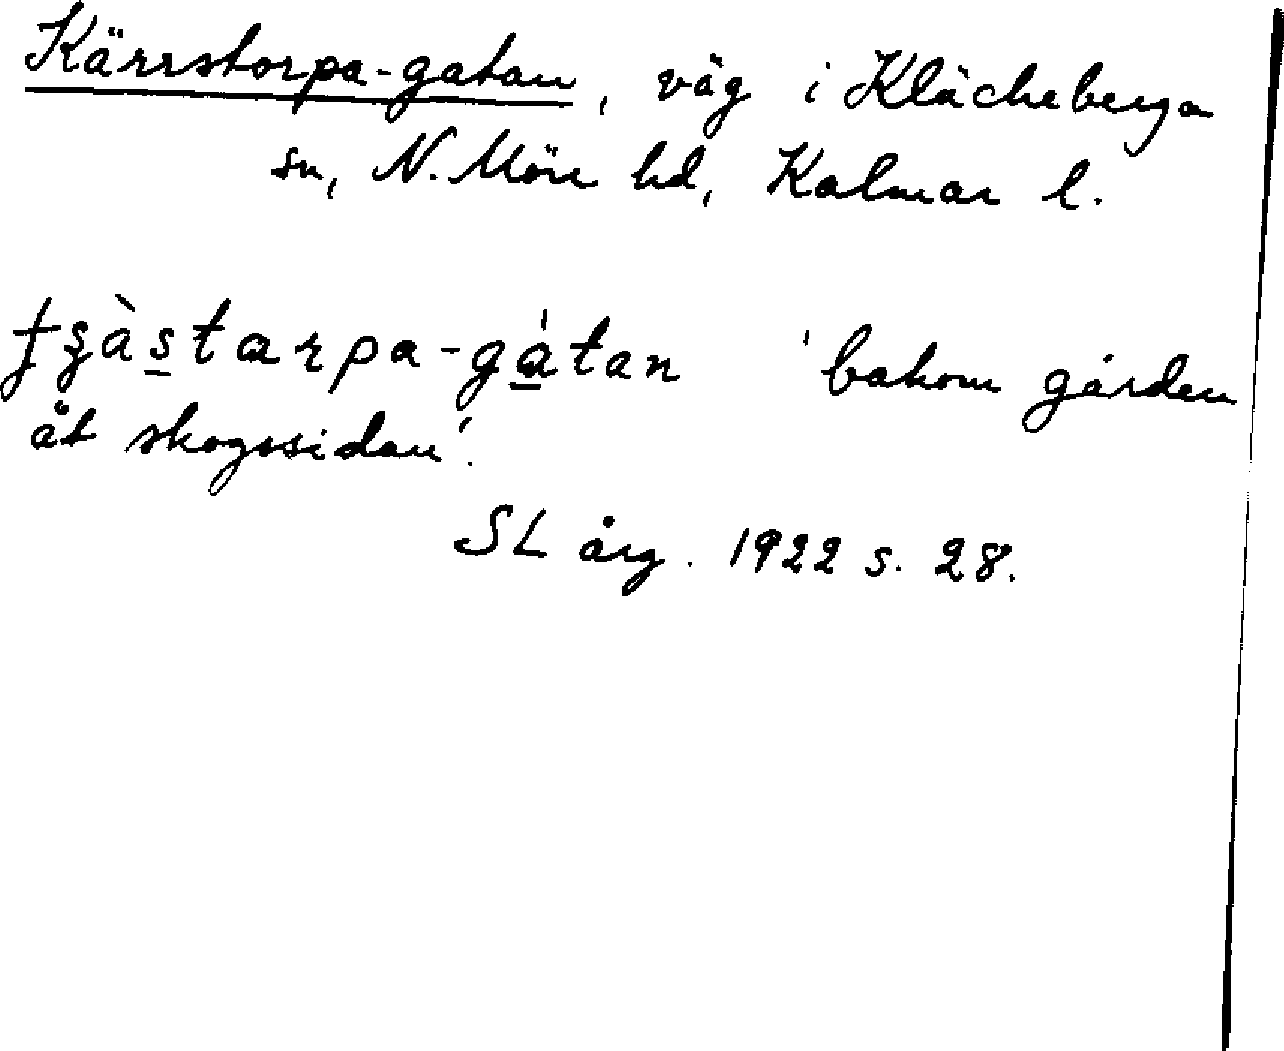 Kärrstorpa-gatan, väg i Kläckeberga
sn, N. Möre hd, Kalmar l.
ʈʂàs̲tarpa-gá̲tan 'bakom gården
åt skogssidan'.
SL årg. 1922 s. 28.